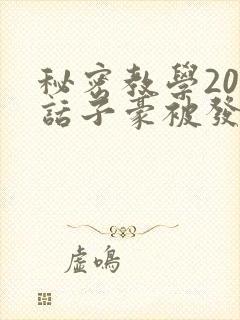 秘密教學20
話子豪被發
虛鳴